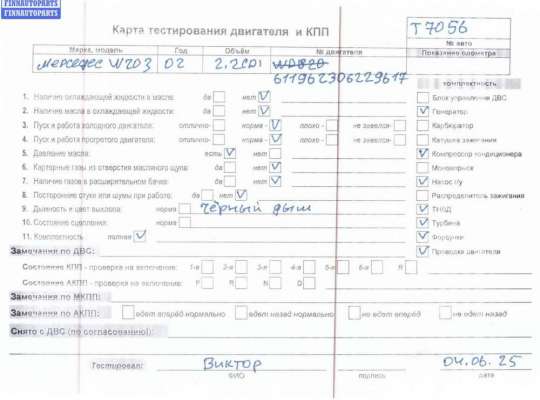 FINNAUTOPARTS
FINNAUTOPARTS
Карта тестирования двигателя и КПП
T7056
№ авто
Марка, модель Год Объём № двигателя Показание одометра
Мерседес W203 02 2,2CDI
611962306229617
комплектность
1. Наличие охлаждающей жидкости в масле: да нет
Блок управления ДВС
2. Наличие масла в охлаждающей жидкости: да нет
Генератор
3. Пуск и работа холодного двигателя: отлично- норма- плохо- не завелся-
Карбюратор
4. Пуск и работа прогретого двигателя: отлично- норма- плохо- не завелся-
Катушка зажигания
5. Давление масла: есть нет
Компрессор кондиционера
6. Картерные газы из отверстия масляного щупа: да нет
Моновпрыск
7. Наличие газов в расширительном бачке: да нет
Насос г/у
8. Посторонние стуки или шумы при работе: да нет
Распределитель зажигания
9. Дымность и цвет выхлопа: норма чёрный дым
ТНВД
10. Состояние сцепления: норма
Турбина
11. Комплектность полная
Форсунки
Замечания по ДВС:
Проводка двигателя
Состояние КПП - проверка на включение: 1-я 2-я 3-я 4-я 5-я 6-я R
Состояние АКПП - проверка на включение: P R N D
Замечания по МКПП:
Замечания по АКПП: едет вперёд нормально едет назад нормально не едет вперёд не едет назад
Снято с ДВС (по согласованию):
Тестировал: Виктор 04.06.25
ФИО подпись дата